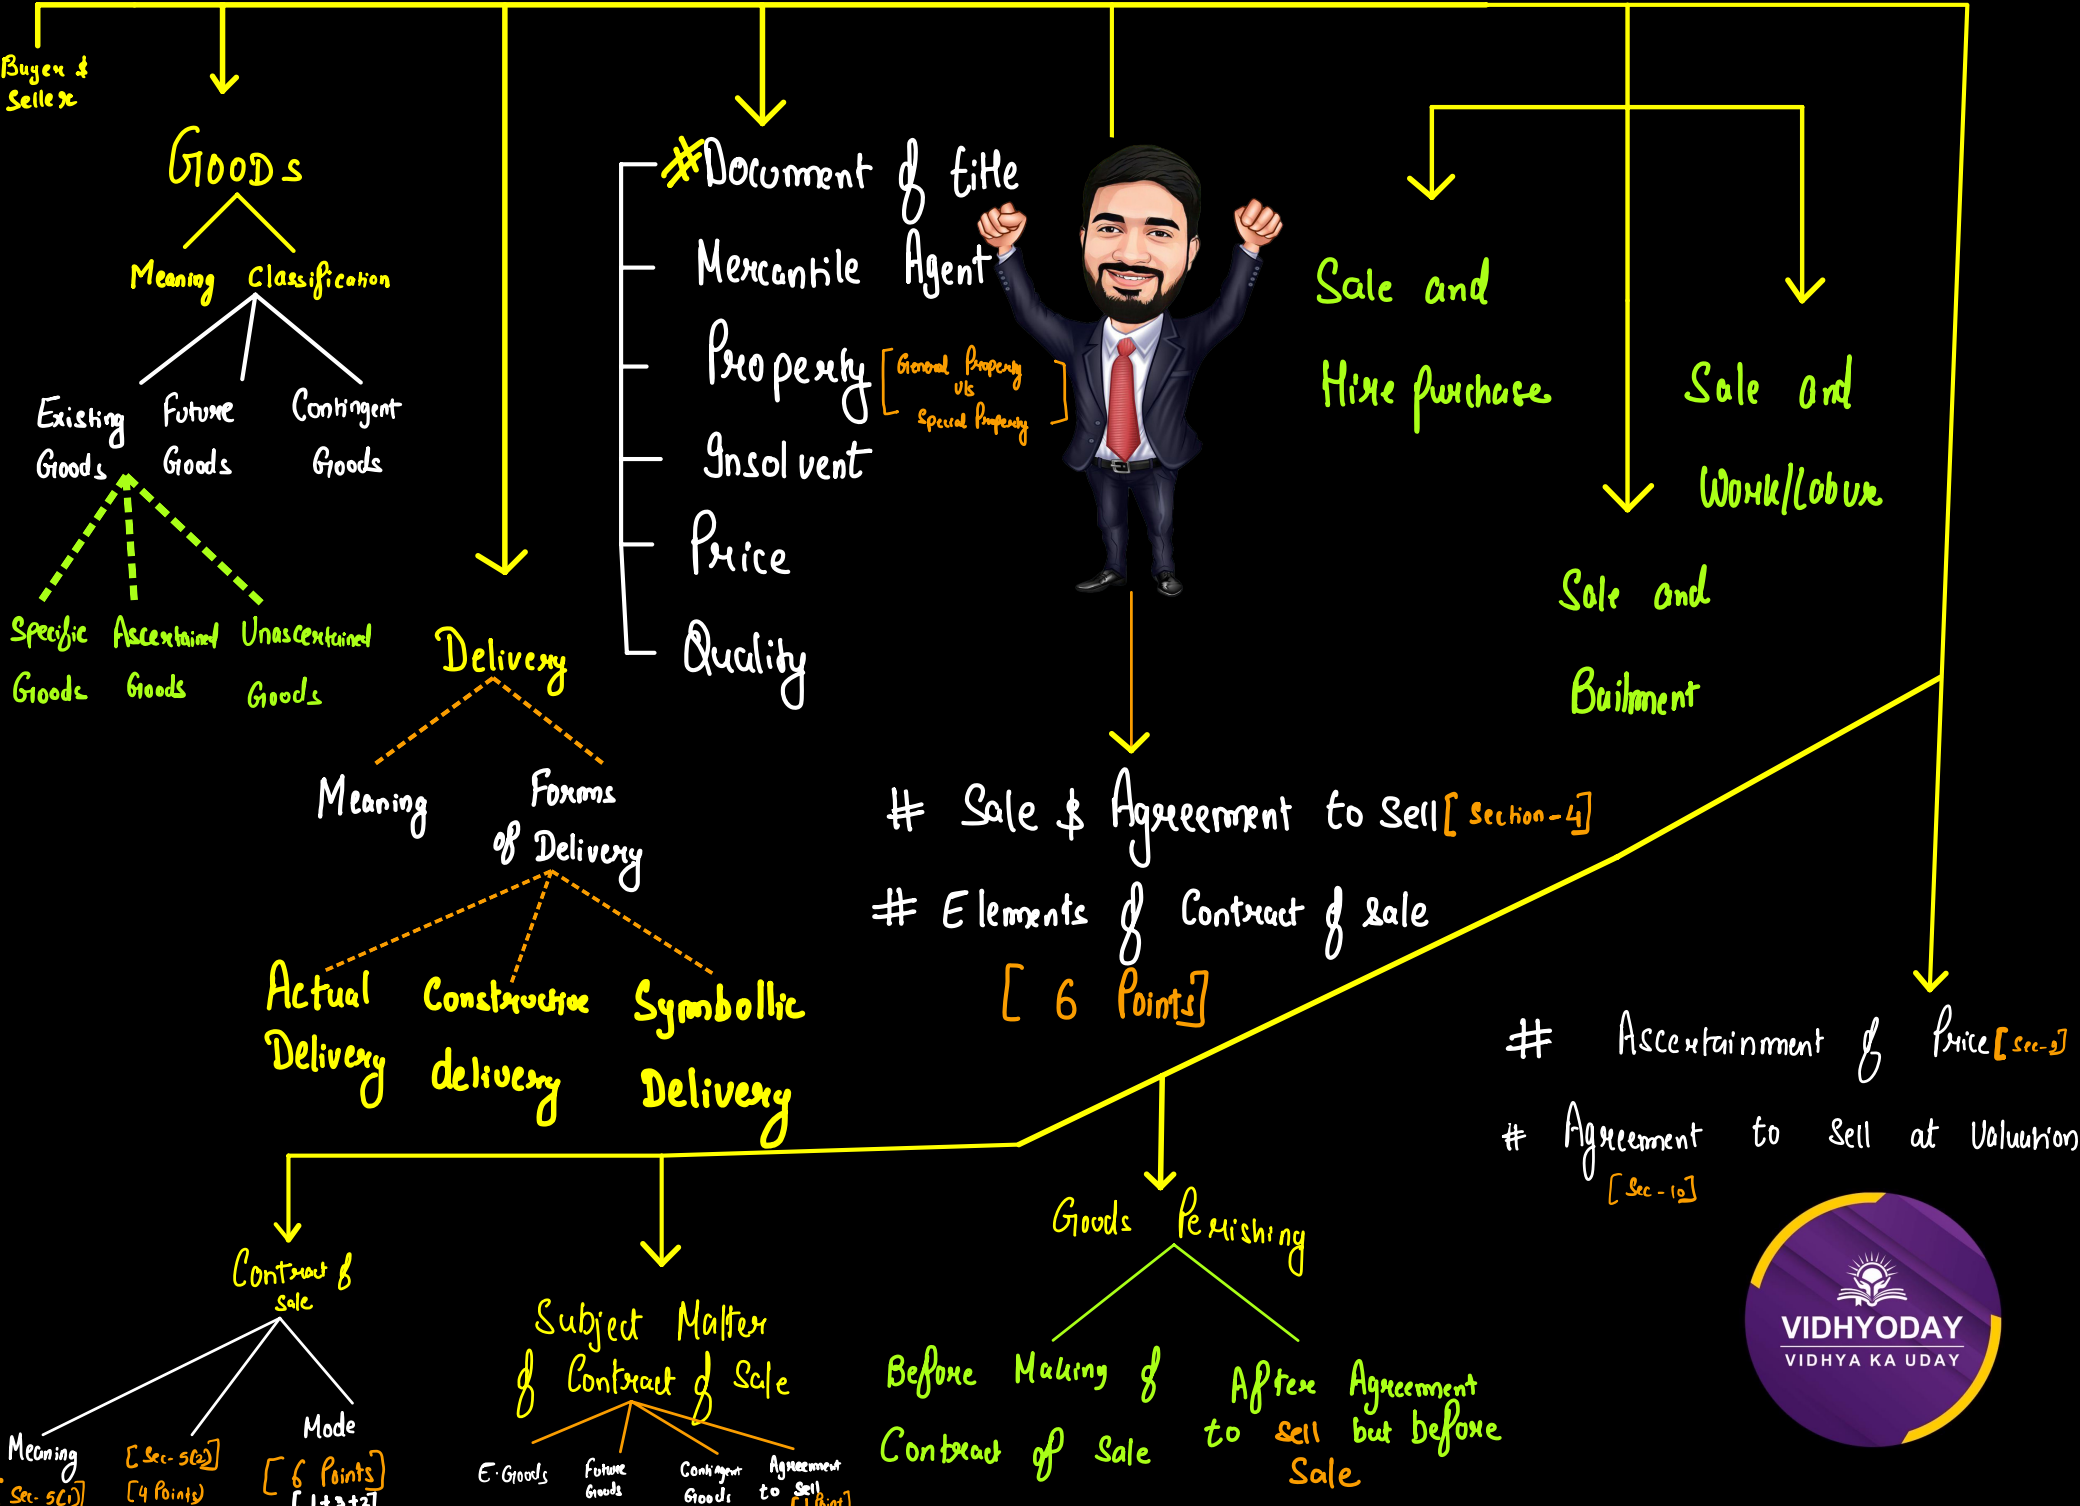 Buyer &
Seller
GOODS
Meaning Classification
Existing Goods
Future Goods
Contingent Goods
Specific Goods
Ascertained Goods
Unascertained Goods
Delivery
Meaning
Forms
of Delivery
Actual Delivery
Constructive delivery
Symbollic Delivery
#Document of title
Mercantile Agent
Property
[General Property
v/s
Special Property]
Insolvent
Price
Quality
Sale and
Hire purchase
Sale and
Work/Labour
Sale and
Bailment
# Sale & Agreement to Sell [Section-4]
# Elements of Contract of sale
[6 Points]
# Ascertainment of Price [Sec-9]
# Agreement to Sell at Valuation
[Sec-10]
Contract of
sale
Meaning
Sec-5(1)]
[Sec-5(2)]
[4 Points)
Mode
[6 Points]
[1+3+2]
Subject Matter
of Contract of Sale
E.Goods
Future
Goods
Contingent
Goods
Agreement
to Sell
[1 Point]
Goods Perishing
Before Making of
Contract of Sale
After Agreement
to Sell but before
Sale
VIDHYODAY
VIDHYA KA UDAY